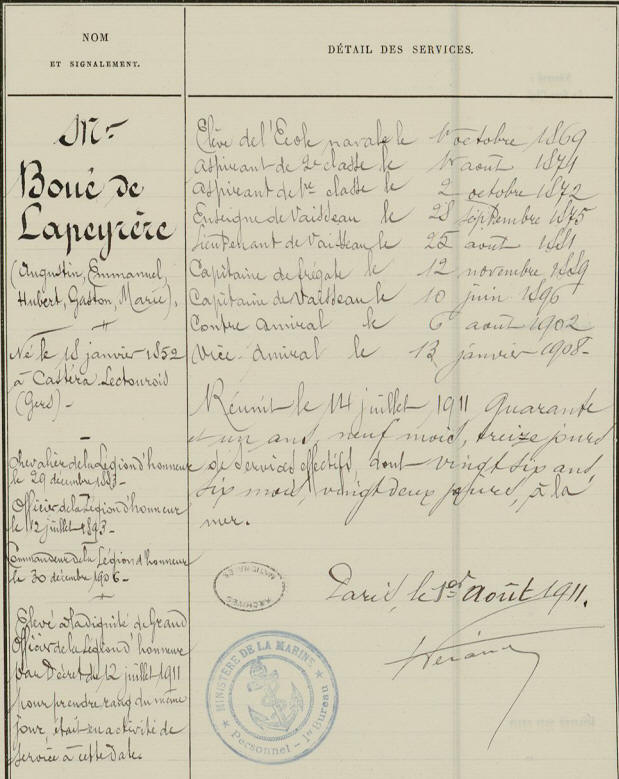 NOM
ET SIGNALEMENT.
Mr
Boué de
Lapeyrère
(Augustin, Emmanuel,
Hubert, Gaston, Marie).
Né le 18 janvier 1852
à Castéra-Lectourois
(Gers) -
Chevalier de la Légion d'honneur
le 20 décembre 1883 -
Officier de la Légion d'honneur
le 12 juillet 1893 -
Commandeur de la Légion d'honneur
le 30 décembre 1906 -
Elevé à la dignité de Grand
Officier de la Légion d'honneur
par Décret du 12 juillet 1911
pour prendre rang du même
jour, était en activité de
service à cette date.
DÉTAIL DES SERVICES.
Elève de l'Ecole navale le 1er octobre 1869
Aspirant de 2e classe le 1er août 1871
Aspirant de 1re classe le 2 octobre 1872
Enseigne de Vaisseau le 28 septembre 1875
Lieutenant de Vaisseau le 25 août 1881
Capitaine de frégate le 12 novembre 1889
Capitaine de Vaisseau le 10 juin 1896
Contre amiral le 6 août 1902
Vice-amiral le 13 janvier 1908 -
Réunit le 14 juillet 1911 quarante
et un ans, neuf mois, treize jours
de services effectifs, dont vingt six ans,
six mois, vingt deux jours, à la
mer.
ARCHIVES NATIONALES
Paris, le 1er Août 1911.
MINISTÈRE DE LA MARINE
Personnel - 1er Bureau